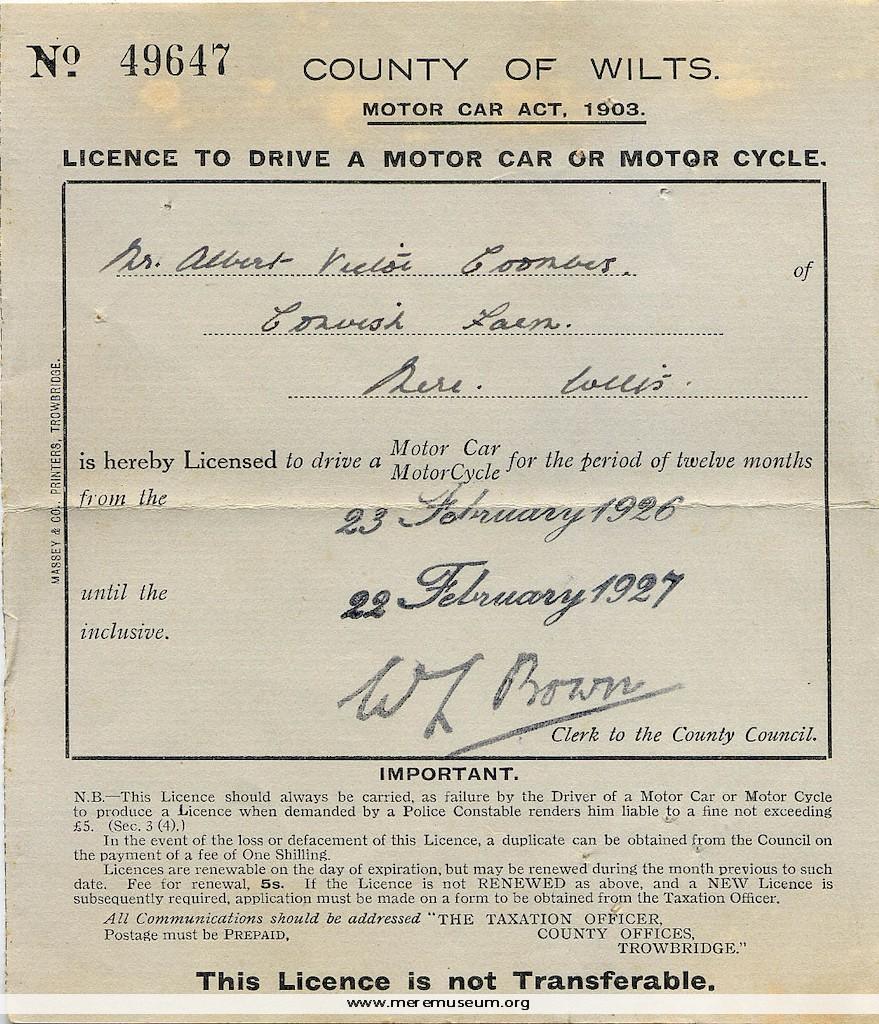 No 49647
COUNTY OF WILTS.
MOTOR CAR ACT, 1903.
LICENCE TO DRIVE A MOTOR CAR OR MOTOR CYCLE.
Mr. Albert Victor Coombes. of
Farm.
Mere. Wilts.
is hereby Licensed to drive a Motor Car
MotorCycle for the period of twelve months
from the 23 February 1926
until the 22 February 1927
inclusive.
W L Bown
Clerk to the County Council.
MASSEY & CO., PRINTERS, TROWBRIDGE.
IMPORTANT.
N.B.—This Licence should always be carried, as failure by the Driver of a Motor Car or Motor Cycle
to produce a Licence when demanded by a Police Constable renders him liable to a fine not exceeding
£5. (Sec. 3 (4).)
In the event of the loss or defacement of this Licence, a duplicate can be obtained from the Council on
the payment of a fee of One Shilling.
Licences are renewable on the day of expiration, but may be renewed during the month previous to such
date. Fee for renewal, 5s. If the Licence is not RENEWED as above, and a NEW Licence is
subsequently required, application must be made on a form to be obtained from the Taxation Officer.
All Communications should be addressed "THE TAXATION OFFICER,
Postage must be PREPAID, COUNTY OFFICES,
TROWBRIDGE."
This Licence is not Transferable.
www.meremuseum.org